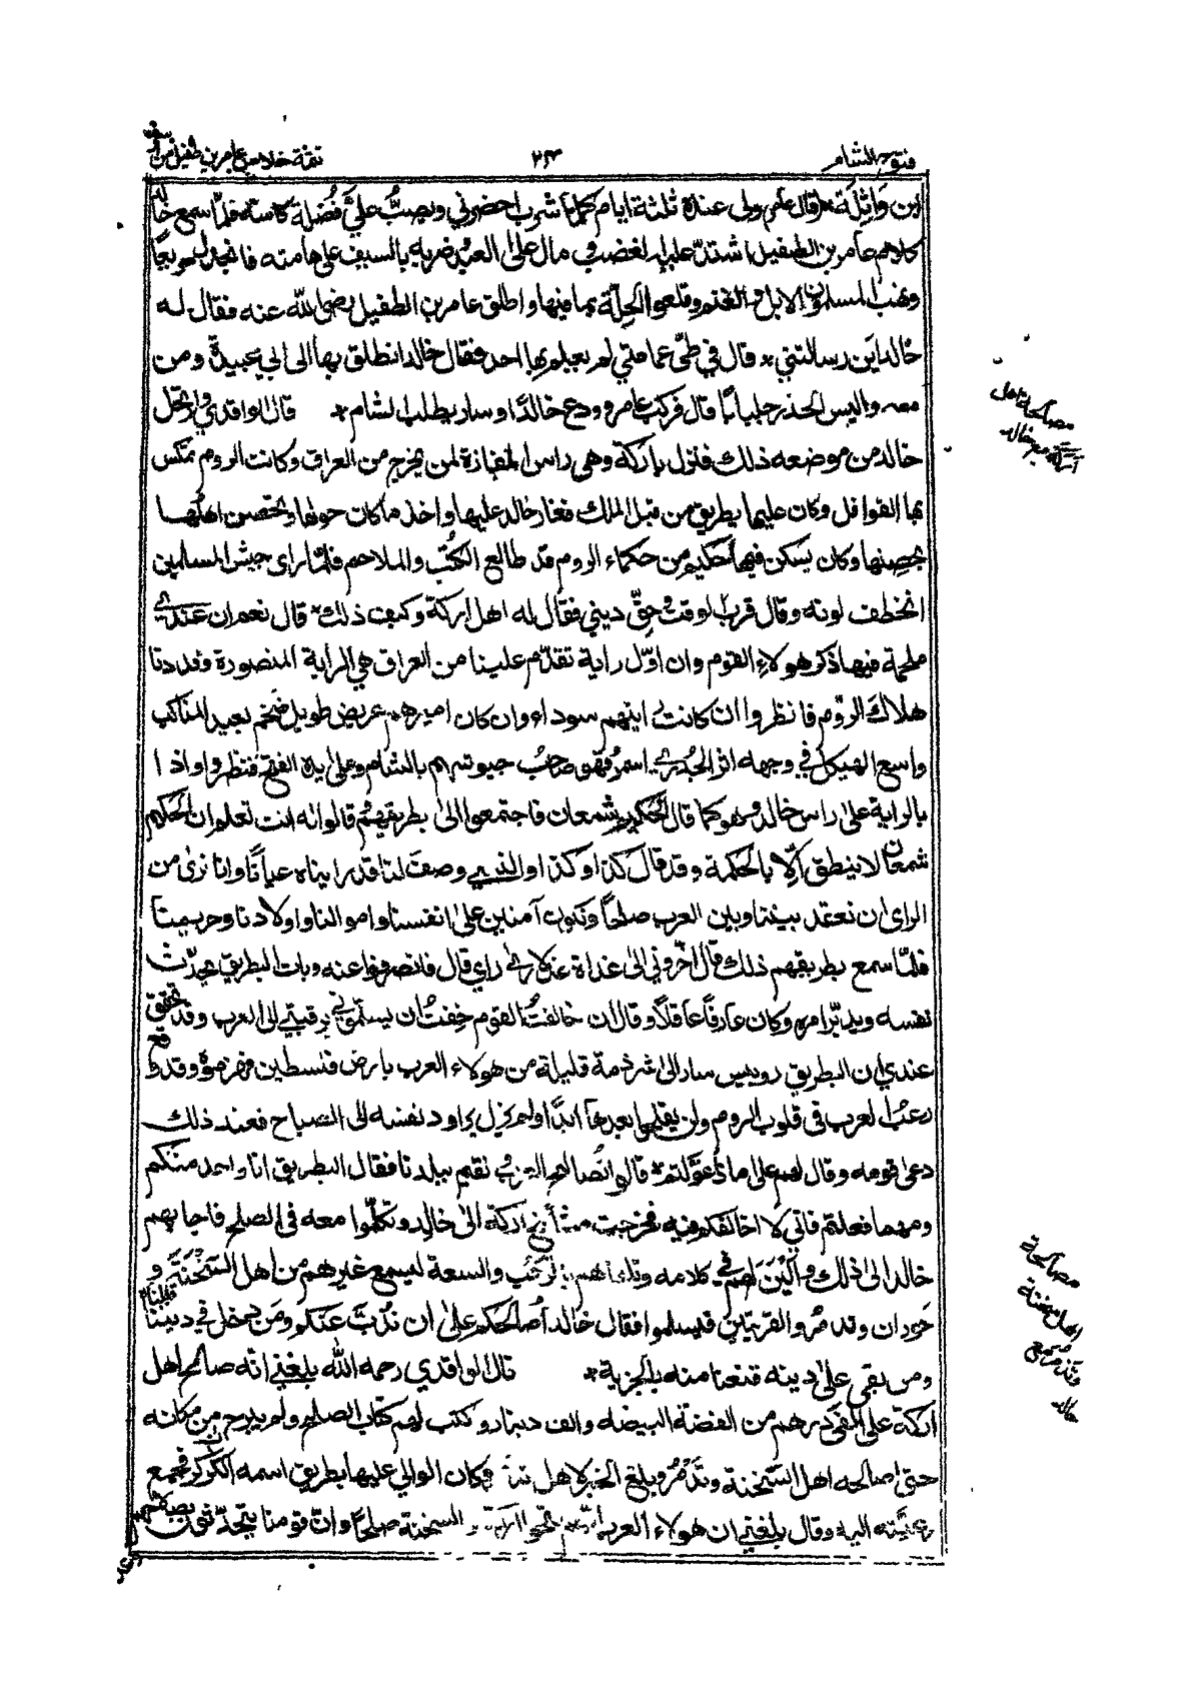 فتوح الشام
٢٣
ابن واثلة قال عامر ولى عنده ثلثة ايام كلما شرب احضرني ويصبّ عليَّ فُضلة كاسته فلمّا سمع خالد
كلام عامر بن الطفيل اشتدّ عليه الغضب مال على العبد ضربه بالسيف على هامته فانجدل صريعًا
ونهب المسلمون الابل والغنم وقلعوا الحِلّة بما فيها واطلق عامر بن الطفيل رضى الله عنه فقال له
خالد اين رسالتي قال في طيّ عمامتي لم يعلم بها احد فقال خالد انطلق بها الى ابي عبيدة ومن
معه والبس الحذر جلبابًا قال فركب عامر وودع خالدًا وسار يطلب الشام قال الواقدي وارتحل
خالد من موضعه ذلك فنزل باركة وهي راس المفازة لمن يخرج من العراق وكانت الروم تمكس
بها القوافل وكان عليها بطريق من قبل الملك فغار خالد عليها واخذ ما كان حولها وتحصن اهلها
بحصنها وكان يسكن فيها حكيم من حكماء الروم قد طالع الكتب والملاحم فلمّا راى جيش المسلمين
انخطف لونه وقال قرب الوقت وحقّ ديني فقال له اهل اركة وكيف ذلك قال نعم ان عندي
ملحمة فيها ذكر هولاءِ القوم وان اوّل راية تقدّم علينا من العراق هي الراية المنصورة وقد دنا
هلاك الروم فانظروا ان كانت رايتهم سوداء وان كان اميرهم عريض طويل ضخم بعيد المناكب
واسع الهيكل في وجهه اثر الجُدري اسمر فهو صاحب جيوشهم بالشام وعلى يده الفتح فنظروا واذا
بالراية على راس خالد وهو كما قال الحكيم شمعان فاجتمعوا الىٰ بطريقهم قالوا له انت تعلم ان الحكيم
شمعان لا ينطق الّا بالحكمة وقد قال كذا وكذا والذي وصف لنا قد رايناه عيانًا وانا نرٰى من
الراى ان نعتقد بيننا وبين العرب صلحًا ونكون آمنين علىٰ انفسنا واموالنا واولادنا وحريمنا
فلمّا سمع بطريقهم ذلك قال اخّروني الىٰ غداة غد لارى راي قال فانصرفوا عنه وبات البطريق يحدّث
نفسه ويدبّر امره وكان عارفًا عاقلًا وقال ان خالفتُ القوم خِفتُ ان يسلموني برقبتي الى العرب وقد تحقق
عندي ان البطريق روبيس سار الىٰ شرذمة قليلة من هولاء العرب بارض فلسطين فهزموه وقد وقع
رعب العرب في قلوب الروم ولن يفلحوا بعدها ابدًا ولم يزل يراود نفسه الى الصباح فعند ذلك
دعى قومه وقال لهم على ماذا عوّلتم قالوا نُصالح العرب نقيم ببلدنا فقال البطريق انا واحد منكم
ومهما فعلتم فاني لا اخالفكم فيه فخرجت مشايخ اركة الىٰ خالد وتكلّموا معه في الصلح فاجابهم
خالد الىٰ ذلك وأَلْيَنَ لهم في كلامه وتلقاهم بالرحب والسعة ليسمع غيرهم من اهل السخنة و
حوران وتدمُر والقريتين فيسلموا فقال خالد أصالحكم علىٰ ان نُذبّ عنكم ومَن دخل في ديننا قبلناه
ومن بقي على دينه قنعنا منه بالجزية قال الواقدي رحمه الله بلغني انه صالح اهل
اركة على الفَي درهم من الفضة البيضاء والف دينار وكتب لهم كتاب الصلح ولم يبرح من مكانه
حتى صالحه اهل السخنة وتدمُر وبلغ الخبر لاهل تدمر وكان الوالي عليها بطريق اسمه الكركر فجمع
رعيّته اليه وقال بلغني ان هولاء العرب فتحوا اركة والسخنة صلحًا وان قومنا يتحدّثون
مصالحة اهل
اركة مع خالد
مصالحة
اهل سخنة
وتدمر مع
خالد